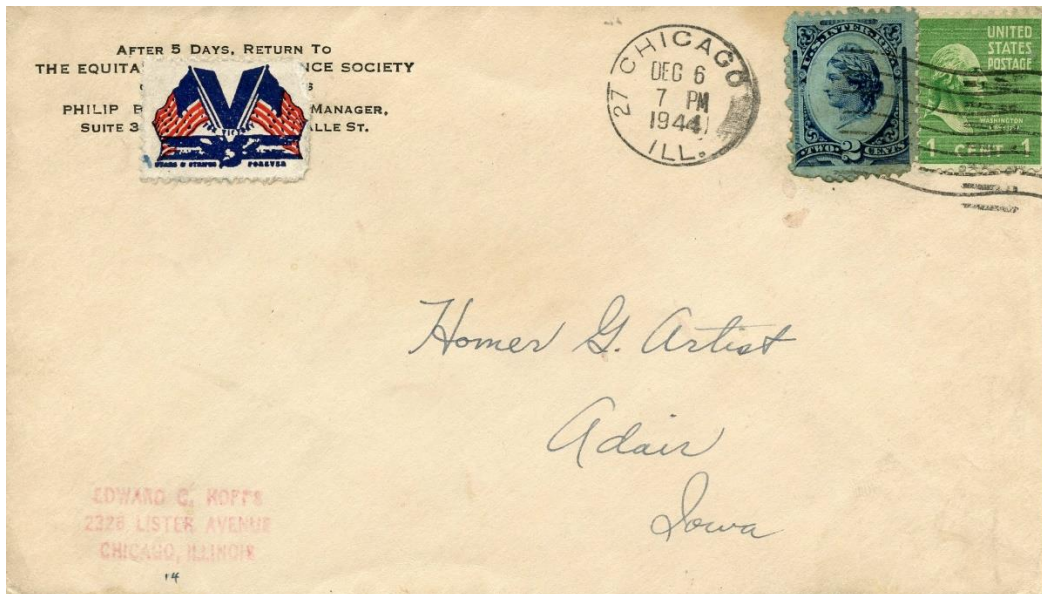 AFTER 5 DAYS, RETURN TO
THE EQUITA NCE SOCIETY
PHILIP B MANAGER,
SUITE 3 ALLE ST.
STARS & STRIPES FOREVER
27 CHICAGO
DEC 6
7 PM
1944
ILL.
U.S. INTER. REV.
TWO 2 CENTS
UNITED
STATES
POSTAGE
WASHINGTON
1 CENT 1
Homer G. Artist
Adair
Iowa
EDWARD C. HOFFS
2328 LISTER AVENUE
CHICAGO, ILLINOIS
14